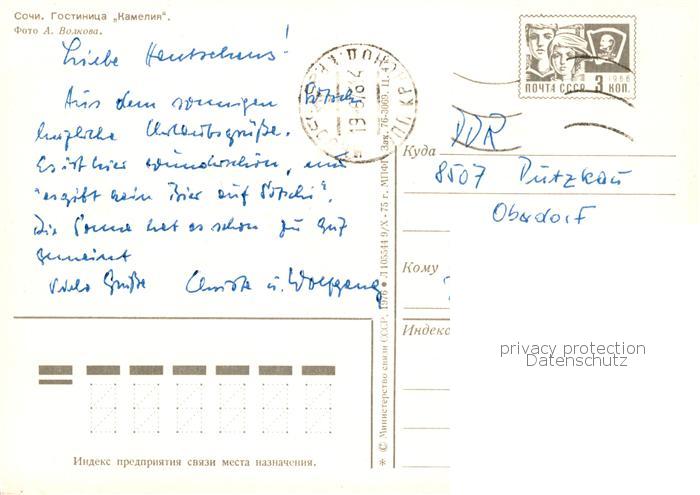 Сочи. Гостиница „Камелия“.
Фото А. Волкова.
Liebe Hentschens!
Aus dem sonnigen Sotschi
herzliche Urlaubsgrüße.
Es ist hier wunderschön, und
"es gibt kein Bier auf Sotschi".
Die Sonne hat es schon zu gut
gemeint
Viele Grüße Christa u. Wolfgang
ПОЧТА СССР 3 КОП.
1966
DDR
Куда
8507 Putzkau
Oberdorf
Кому
Индекс
privacy protection
Datenschutz
© Министерство связи СССР, 1976 ● Л 105544 9/X - 75 г. МПФГ. Зак. 76-3069. Ц. 4
Индекс предприятия связи места назначения.